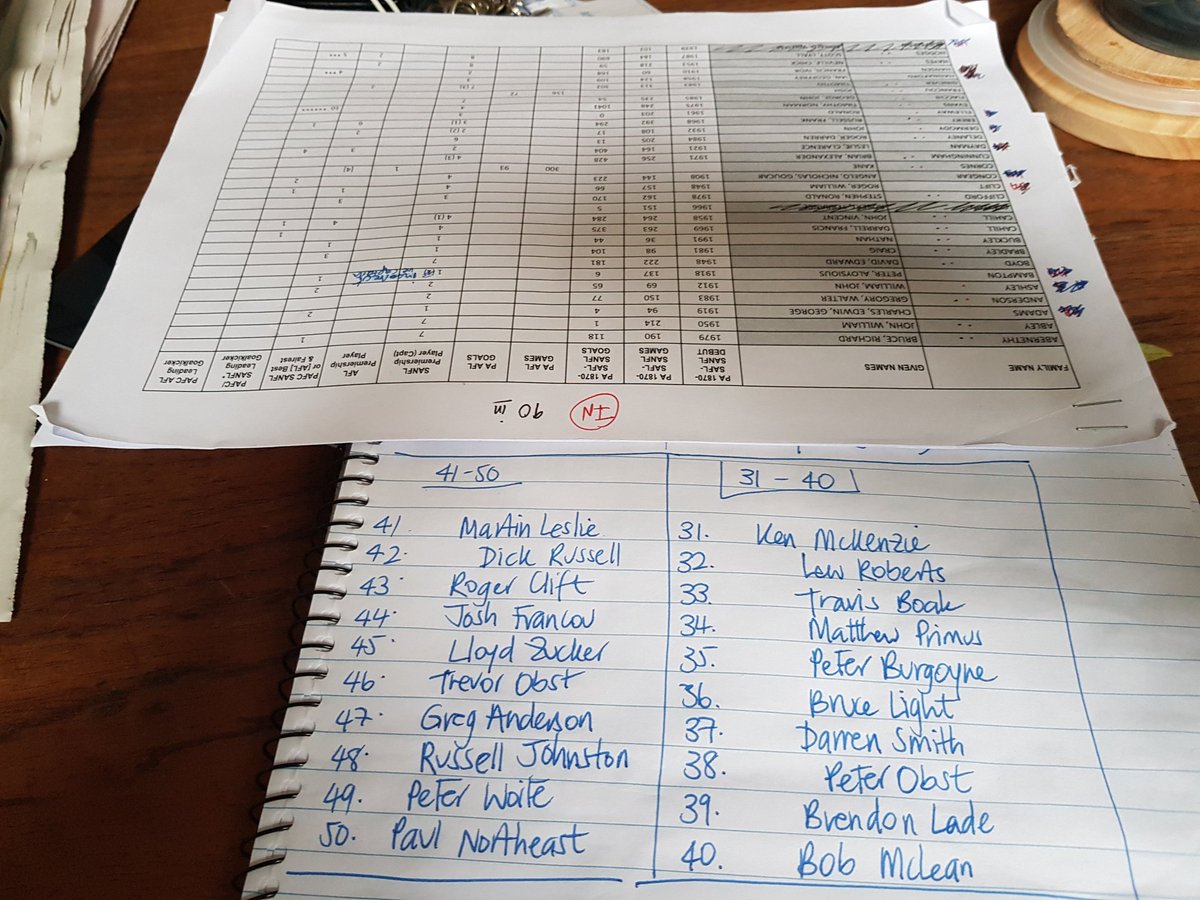 IN 90 in
FAMILY NAME GIVEN NAMES PA 1870-SAFL-SANFL DEBUT PA 1870-SAFL-SANFL GAMES PA 1870-SAFL-SANFL GOALS PA AFL GAMES PA AFL GOALS SANFL Premiership Player (Capt) AFL Premiership Player PAFC SANFL or AFL [Best & Fairest PAFC/ SANFL* Leading Goalkicker PAFC AFL Leading Goalkicker
ABERNETHY BRUCE, RICHARD 1979 190 118 7 1
ABLEY JOHN, WILLIAM 1950 214 1 7
ADAMS CHARLES, EDWIN, GEORGE 1919 94 4 2 2
ANDERSON GREGORY, WALTER 1983 150 77 2
ASHLEY WILLIAM, JOHN 1912 69 65 2 2
BAMPTON PETER, ALOYSIOUS 1918 137 6 1 1
BOYD DAVID, EDWARD 1948 222 181 7
BRADLEY CRAIG 1981 98 104 1 3
BUCKLEY NATHAN 1991 36 44 1 1
CAHILL DARRELL, FRANCIS 1969 263 375 4 1
CAHILL JOHN, VINCENT 1958 264 284 4 (1) 4 1
1966 151 5
CLIFFORD STEPHEN, RONALD 1978 162 170 3 3
CLIFT ROGER, WILLIAM 1948 157 66 4 1 1
CONGEAR ANGELO, NICHOLAS, GOUCAR 1908 144 223 4 2
CORNES KANE 300 93 1 (4)
CUNNINGHAM BRIAN, ALEXANDER 1971 256 428 4 (3)
DAYMAN LESLIE, CLARENCE 1921 164 404 2 3 4
DELANEY ROGER, DARREN 1984 205 13 6
DERMODY JOHN 1932 108 17 2 (2)
EBERT RUSSELL, FRANK 1968 392 294 3 (1) 6 1
ELLEWAY RONALD 1961 203 0 4
EVANS TIMOTHY, NORMAN 1975 248 1041 4 10 ******
GEORGE, JOHN 1985 235 54 2
FRANCOU JOSH 156 72
41-50
41. Martin Leslie
42. Dick Russell
43. Roger Clift
44. Josh Francou
45. Lloyd Zucker
46. Trevor Obst
47. Greg Anderson
48. Russell Johnston
49. Peter Woite
50. Paul Northeast
31 - 40
31. Ken McKenzie
32. Lew Roberts
33. Travis Boak
34. Matthew Primus
35. Peter Burgoyne
36. Bruce Light
37. Darren Smith
38. Peter Obst
39. Brendon Lade
40. Bob McLean